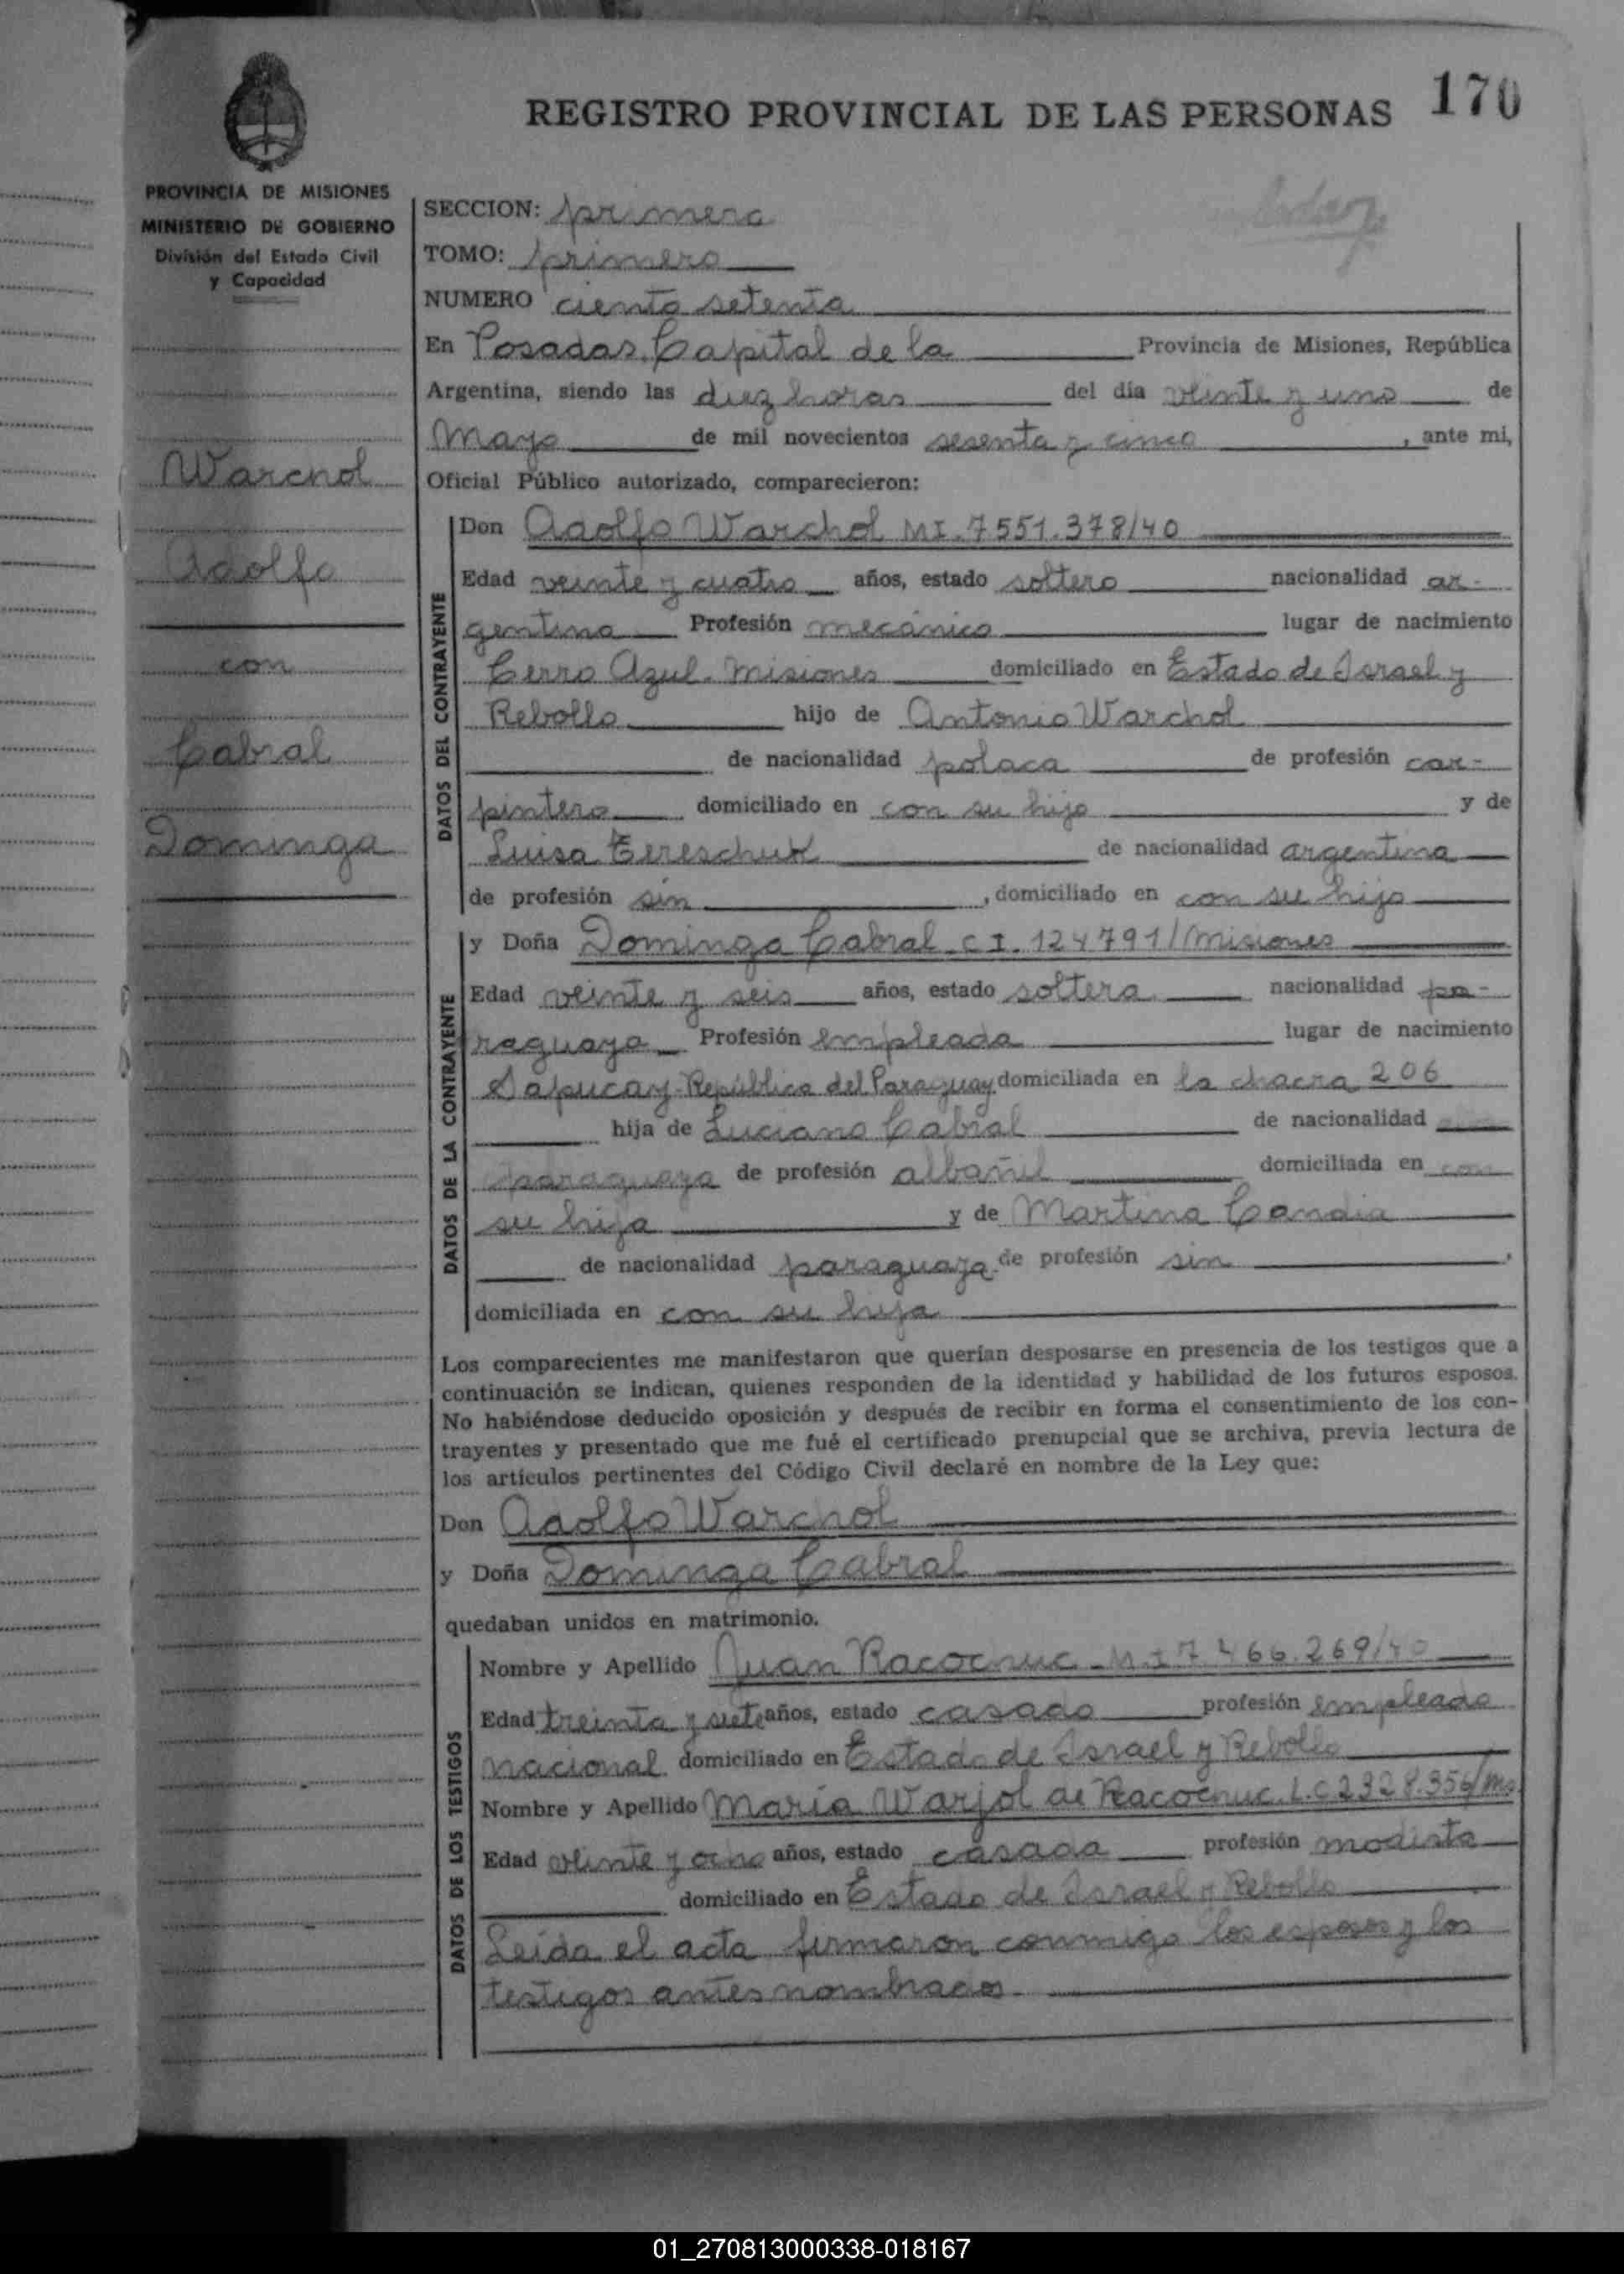 REGISTRO PROVINCIAL DE LAS PERSONAS 170
PROVINCIA DE MISIONES
MINISTERIO DE GOBIERNO
División del Estado Civil
y Capacidad
Warchol
Adolfo
con
Cabral
Dominga
SECCION: primera
TOMO: primero
NUMERO ciento setenta
En Posadas, Capital de la Provincia de Misiones, República
Argentina, siendo las diez horas del día veinte y uno de
Mayo de mil novecientos sesenta y cinco, ante mi,
Oficial Público autorizado, comparecieron:
DATOS DEL CONTRAYENTE
Don Adolfo Warchol MI. 7551.378/40
Edad veinte y cuatro años, estado soltero nacionalidad ar-
gentina Profesión mecánico lugar de nacimiento
Cerro Azul. Misiones domiciliado en Estado de Israel y
Rebollo hijo de Antonio Warchol
de nacionalidad polaca de profesión car-
pintero domiciliado en con su hijo y de
Luisa Tereschuk de nacionalidad argentina
de profesión sin, domiciliado en con su hijo
DATOS DE LA CONTRAYENTE
y Doña Dominga Cabral C I. 124791/Misiones
Edad veinte y seis años, estado soltera nacionalidad pa-
raguaya Profesión empleada lugar de nacimiento
Sapucay-República del Paraguay domiciliada en la chacra 206
hija de Luciano Cabral de nacionalidad
paraguaya de profesión albañil domiciliada en con
su hija y de Martina Candia
de nacionalidad paraguaya de profesión sin,
domiciliada en con su hija
Los comparecientes me manifestaron que querían desposarse en presencia de los testigos que a
continuación se indican, quienes responden de la identidad y habilidad de los futuros esposos.
No habiéndose deducido oposición y después de recibir en forma el consentimiento de los con-
trayentes y presentado que me fué el certificado prenupcial que se archiva, previa lectura de
los artículos pertinentes del Código Civil declaré en nombre de la Ley que:
Don Adolfo Warchol
y Doña Dominga Cabral
quedaban unidos en matrimonio.
DATOS DE LOS TESTIGOS
Nombre y Apellido Juan Racocnuc - M I 7.466.269/40
Edad treinta y siete años, estado casado profesión empleado
nacional domiciliado en Estado de Israel y Rebollo
Nombre y Apellido María Warjol de Racocnuc. L.C 2328.356/Ms.
Edad veinte y ocho años, estado casada profesión modista
domiciliado en Estado de Israel y Rebollo
Leída el acta firmaron conmigo los esposos y los
testigos antes nombrados
01_270813000338-018167